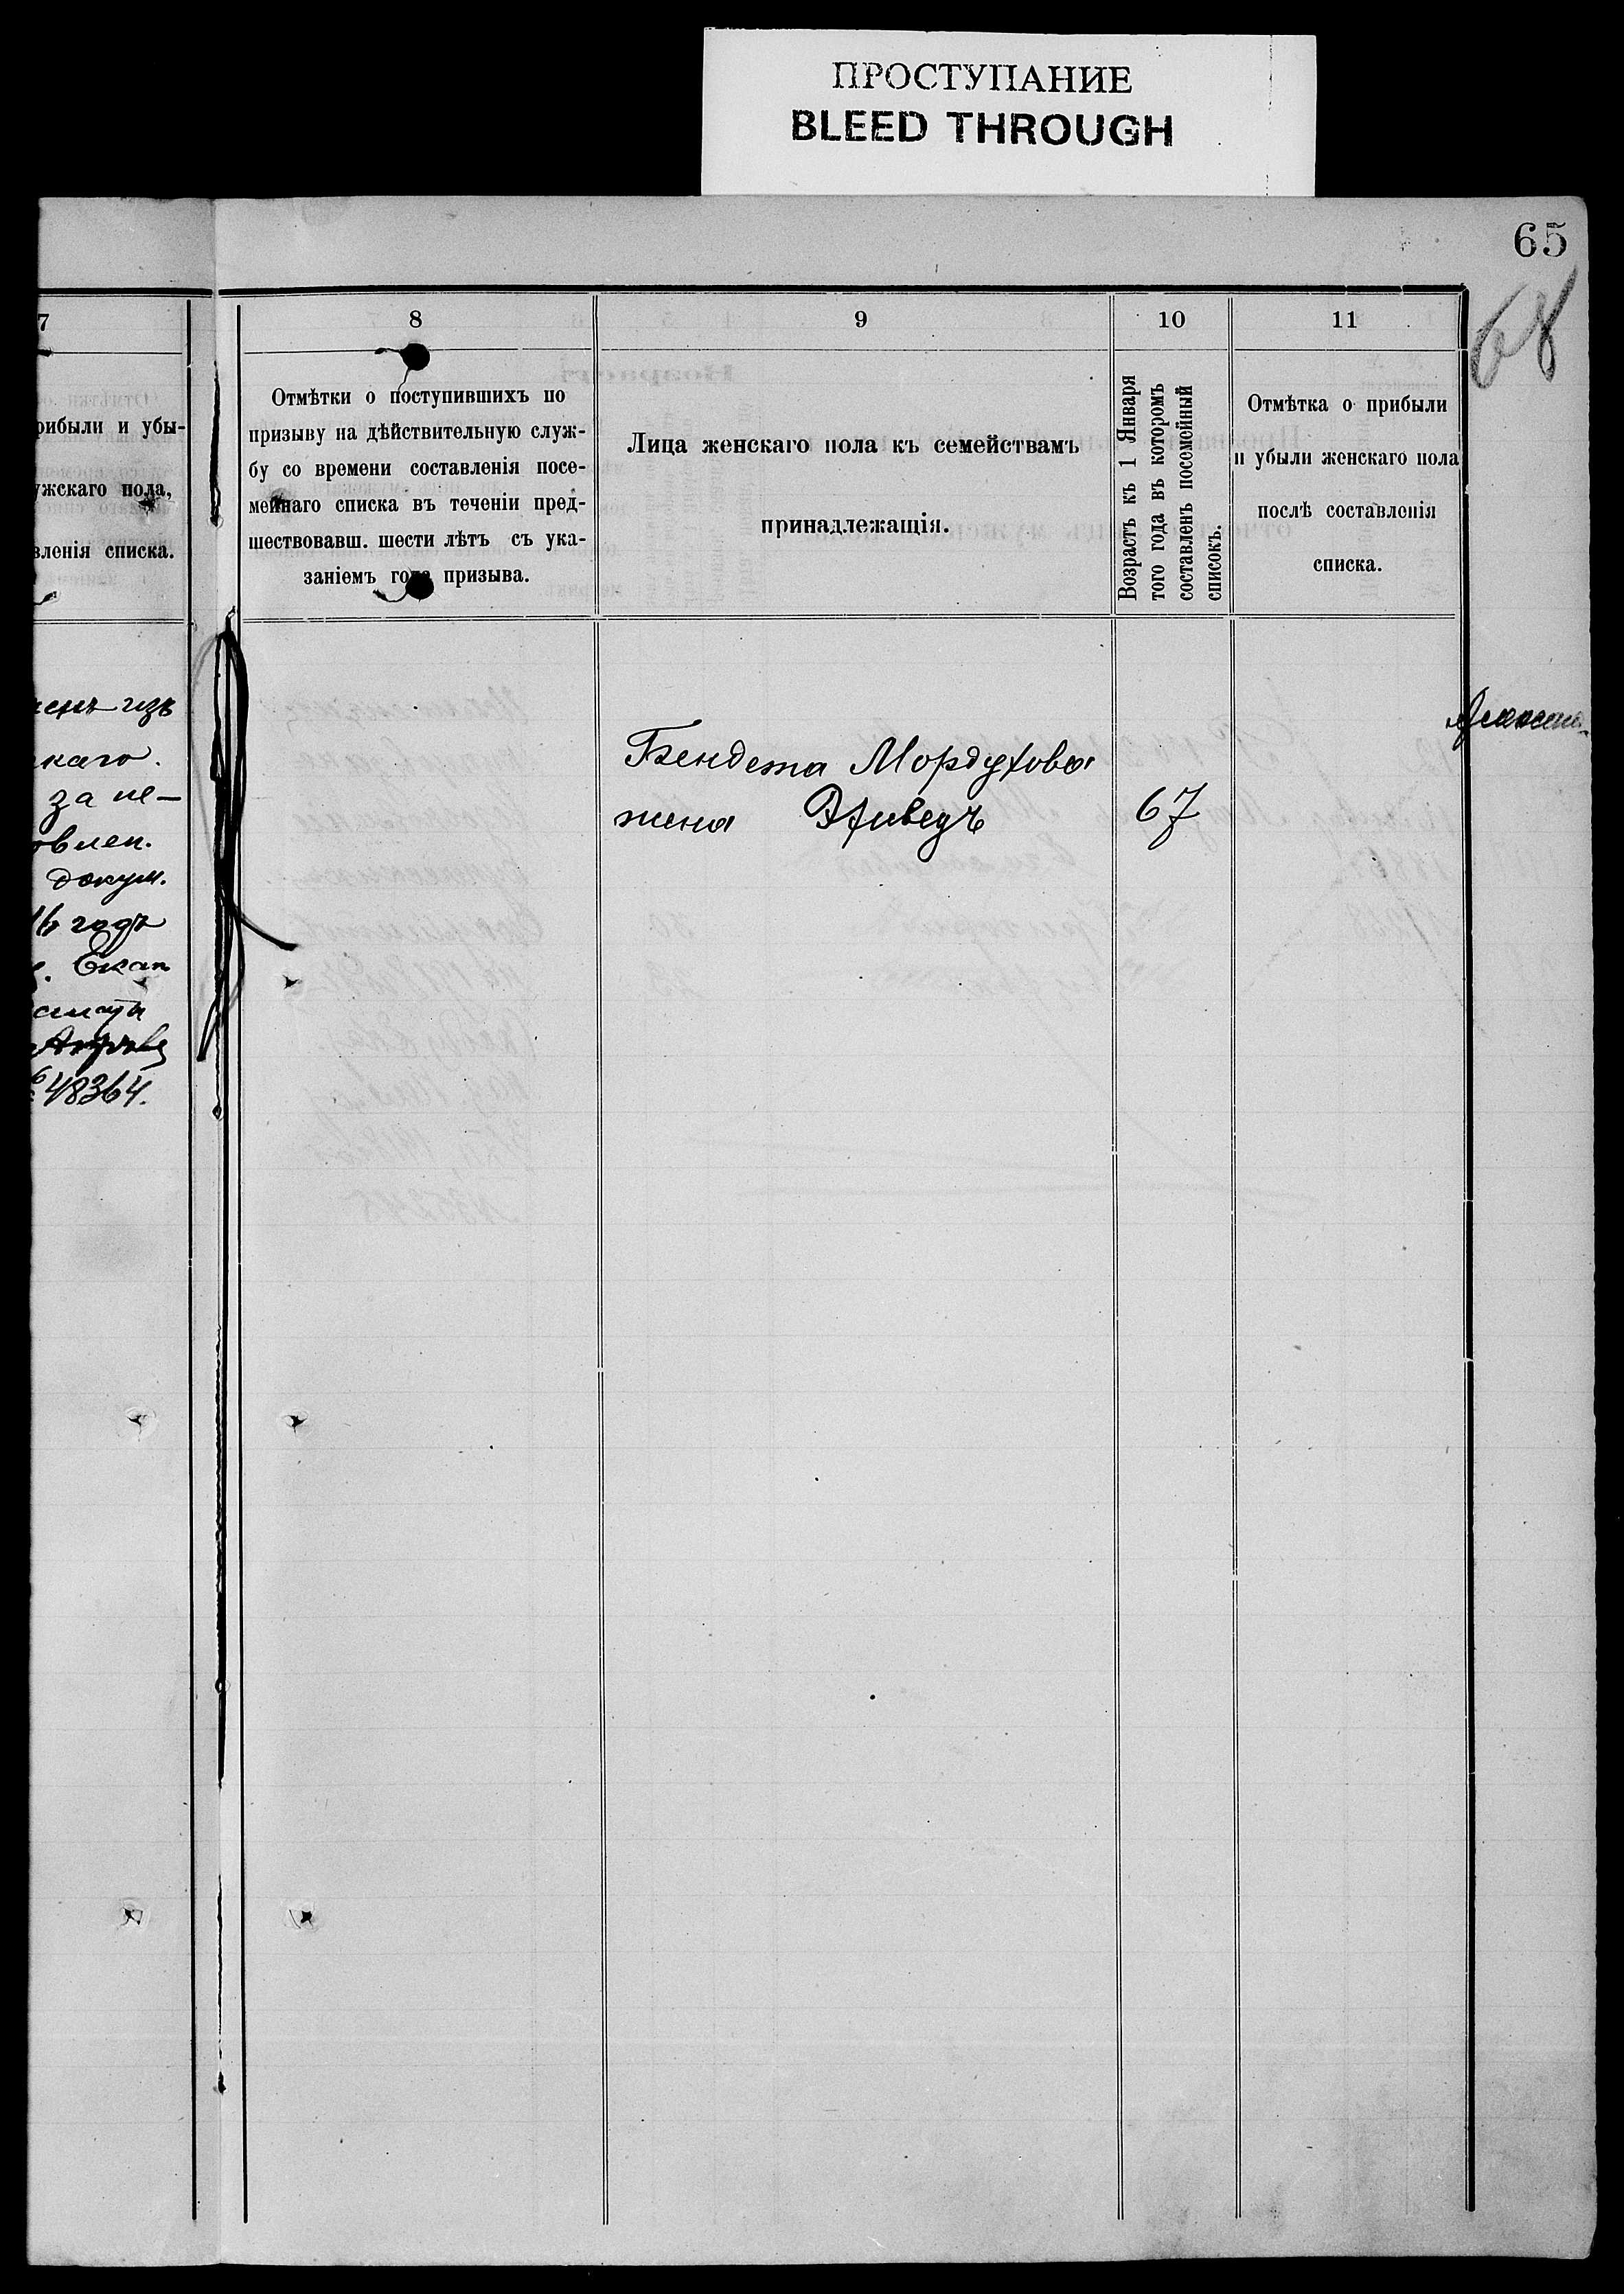 ПРОСТУПАНИЕ
BLEED THROUGH
65
68
7
рибыли и убы-
ужскаго пола,
вленія списка.
енъ изъ
каго.
за не-
овлен.
докум.
16 годъ
Екат
48364.
8
Отмѣтки о поступившихъ по
призыву на дѣйствительную служ-
бу со времени составленія посе-
мейнаго списка въ теченіи пред-
шествовавш. шести лѣтъ съ ука-
заніемъ года призыва.
9
Лица женскаго пола къ семействамъ
принадлежащія.
Бендета Мордухова
жена
67
10
Возрастъ къ 1 Января
того года въ которомъ
составленъ посемейный
списокъ.
11
Отмѣтка о прибыли
и убыли женскаго пола
послѣ составленія
списка.